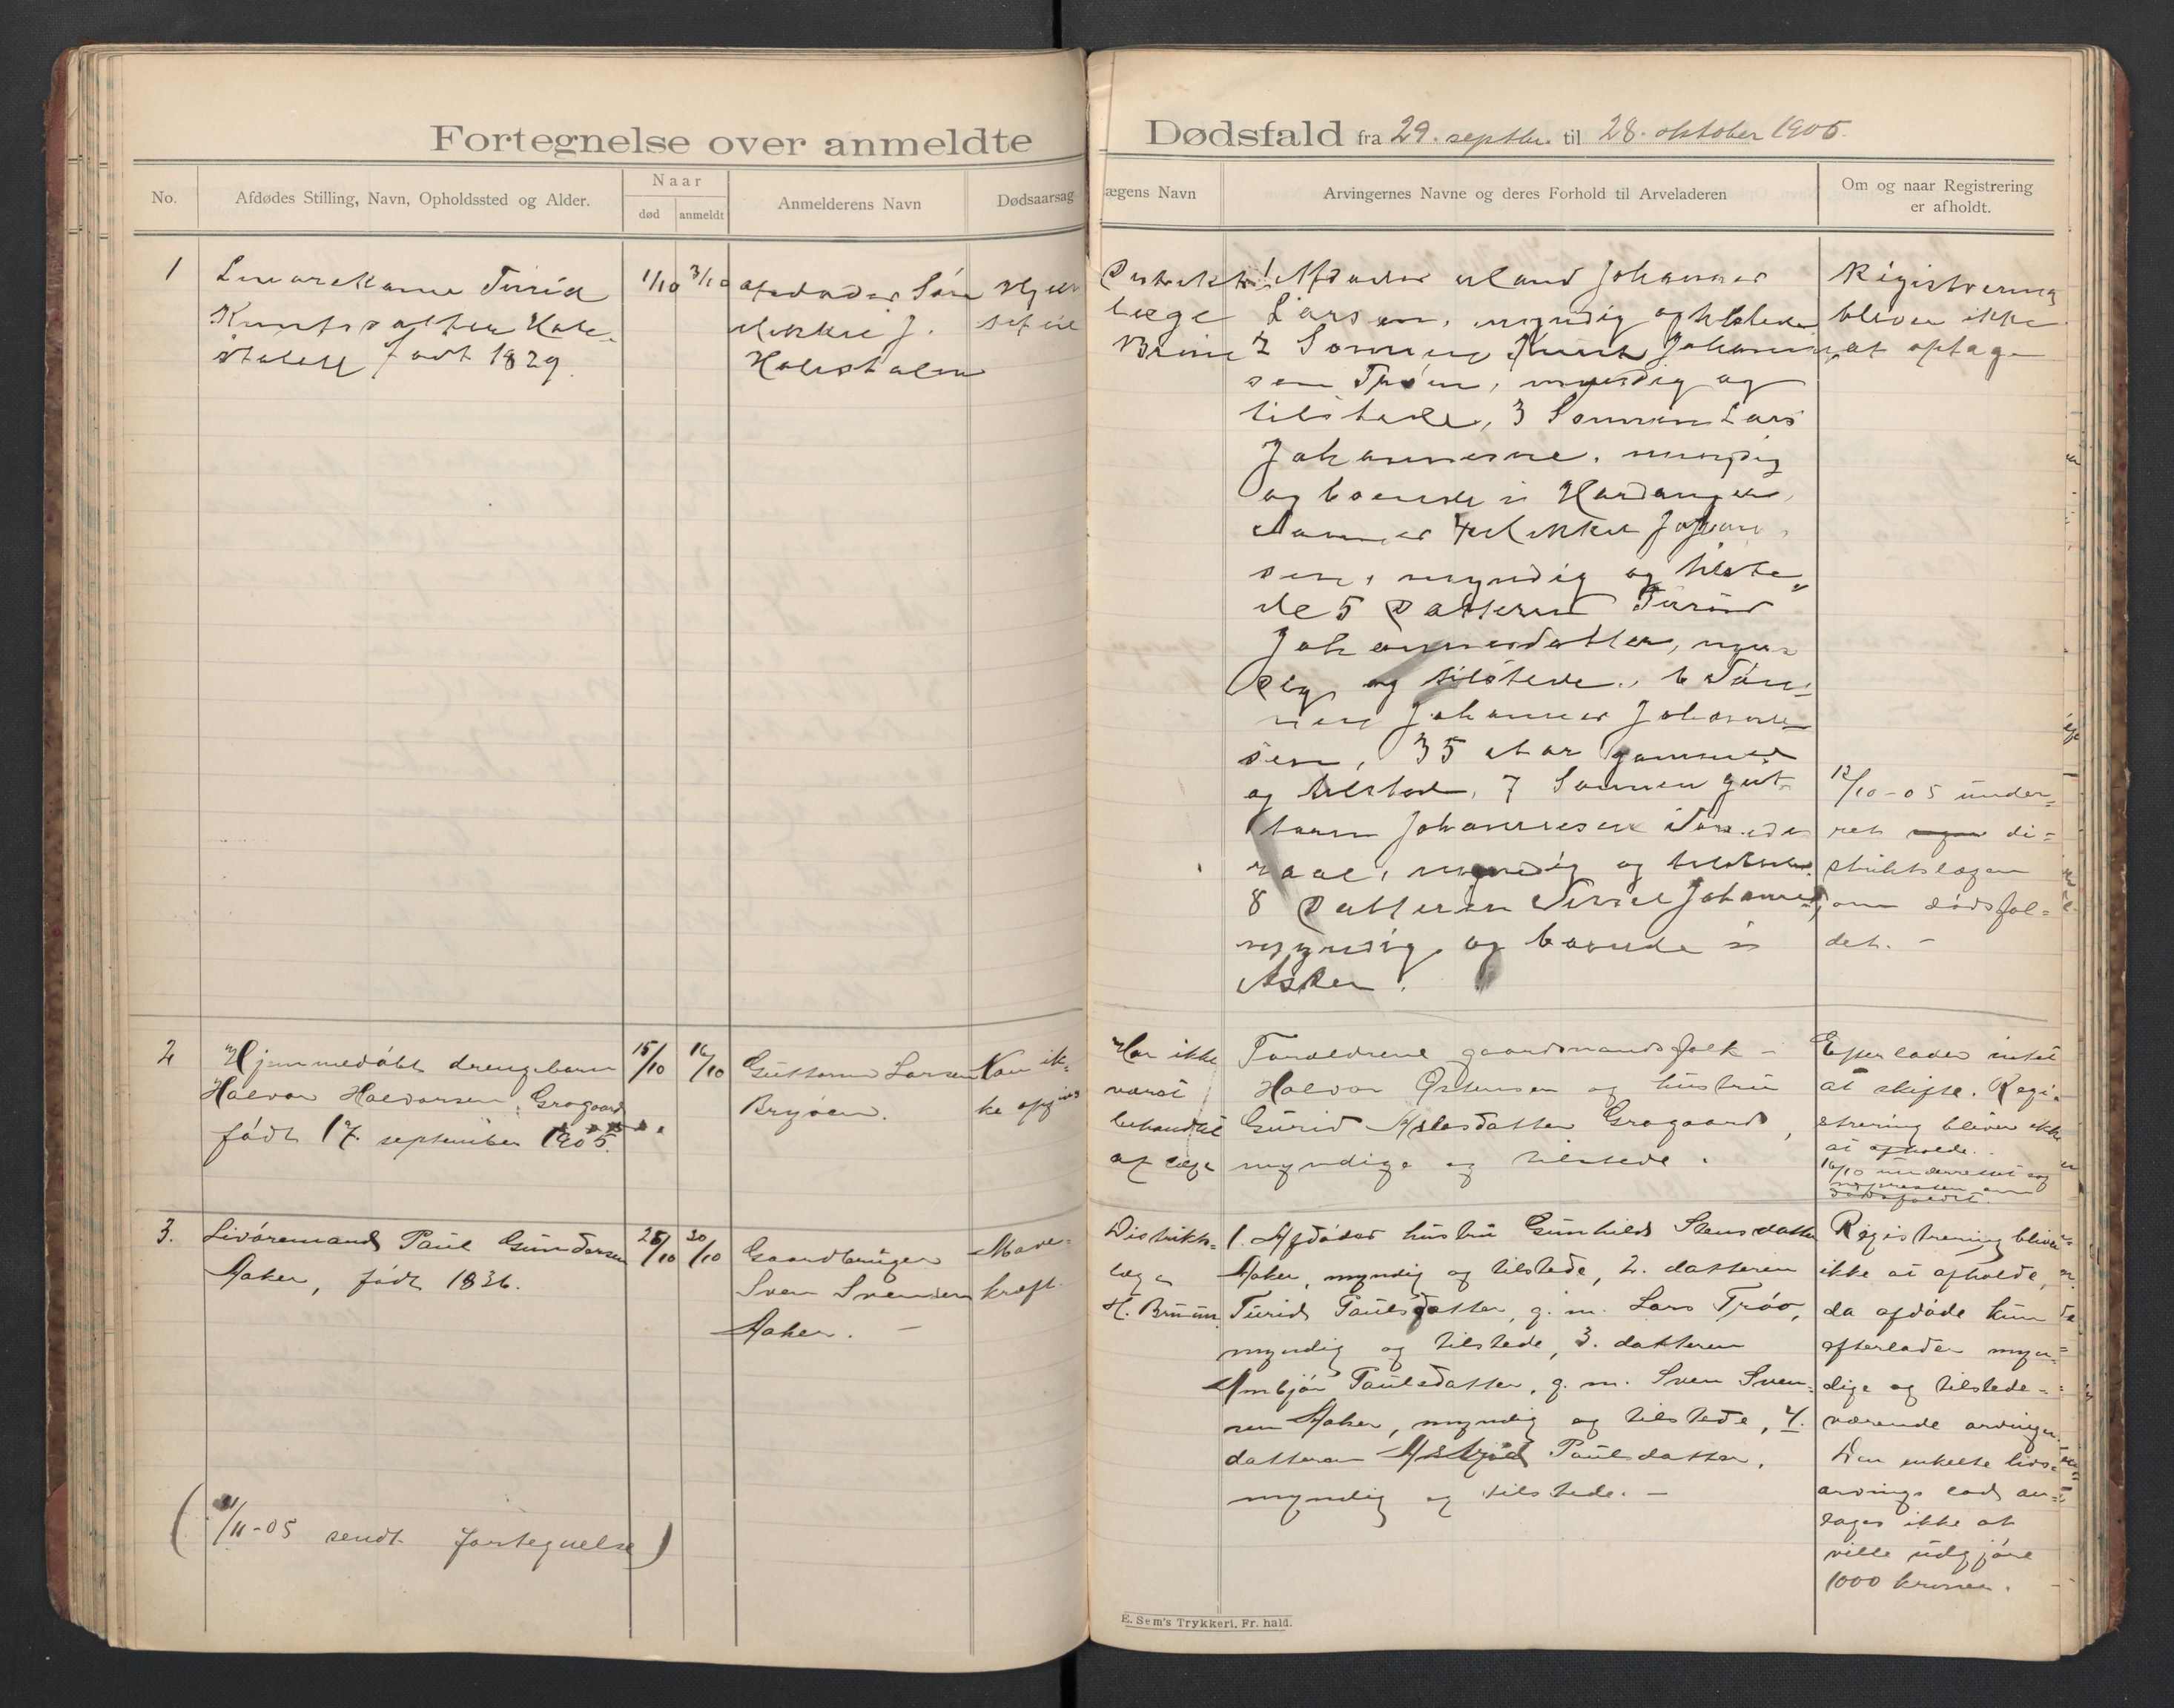 Fortegnelse over anmeldte Dødsfald fra 29. septbr. til 28. oktober 1905.
No.
Afdødes Stilling, Navn, Opholdssted og Alder.
Naar
død
anmeldt
Anmelderens Navn
Dødsaarsag
ægens Navn
Arvingernes Navne og deres Forhold til Arveladeren
Om og naar Registrering
er afholdt.
1
Turid
født 1829.
1/10
3/10
afdødes Søn
Mikkel J.
Holestølen
Hjerte
Distrikts
læge
1 Afdødes Mand Johannes
Larsen, myndig og tilstede
2 Sønnen Knut Johannes
sen Trøen, myndig og
tilstede, 3 Sønnen Lars
Johannesne. myndig
og boende i Hardanger,
Sønnen 4 Mikkel Johanne
sen, myndig og tilste
de 5 Datteren Turid
Johannesdatter, myn
dig og tilstede, 6 Søn
nen Johannes Johanne
sen, 35 Aar gammel
og tilstede, 7 Sønnen Gut
torm Johannesen
myndig og tilstede
8 Datteren Johannesd
myndig og boende i
Asker.
Registrering
bliver ikke
at optage
12/10-05 under=
ret di=
striktslægen
om dødsfal=
det. -
2
Hjemmedøbt drengebarn
Halvor Halvorsen Gragaard
født 17. september 1905.
15/10
16/10
Guttorm Larsen
Bryøen.
Kan ik=
ke opgives
Har ikke
været
behandlet
af læge
Forældrene gaardmandsfolk -
Halvor Østensen og hustru
Gurid Aslesdatter Gragaard,
myndige og tilstede.
Efterlader intet
at skifte. Regi=
strering bliver ikke
at afholde.
16/10 underrettet
om
dødsfaldet.
3.
Livøremand Paul Gundersen
Aaker, født 1836.
28/10
30/10
Gaardbruger
Sven Svensen
Aaker. -
Mave=
kræft.
Distrikts=
læge
H. Bruun.
1. Afdødes hustru Gunhild Stensdatter
Aaker, myndig og tilstede, 2. datteren
Turid Paulsdatter, g. m. Lars Trøo,
myndig og tilstede, 3. datteren
Ambjør Paulsdatter, g. m. Sven Sven=
sen Aaker, myndig og tilstede, 4.
datteren Astrid Paulsdatter,
myndig og tilstede. -
Registrering bliver
ikke at afholde,
da afdøde kun
efterlader myn=
dige og tilstede-
værende arvinger.
Den enkelte livs=
arvings lod an=
tages ikke at
ville udgjøre
1000 kroner.
( 1/11-05 sendt fortegnelse )
E. Sem's Trykkeri, Fr. hald.